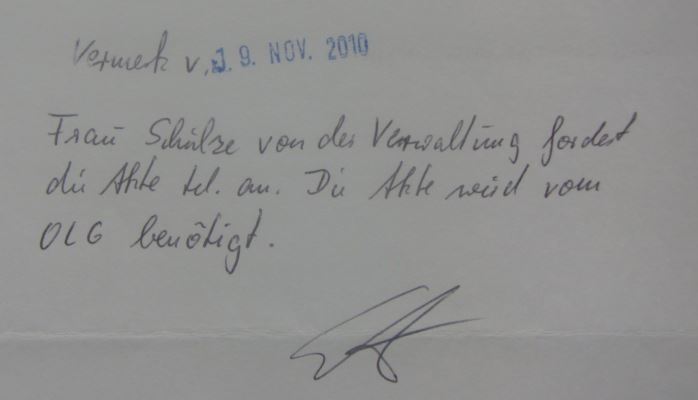 Vermerk v. 19. NOV. 2010
Frau Schulze von der Verwaltung fordert
die Akte tel. an. Die Akte wird vom
OLG benötigt.